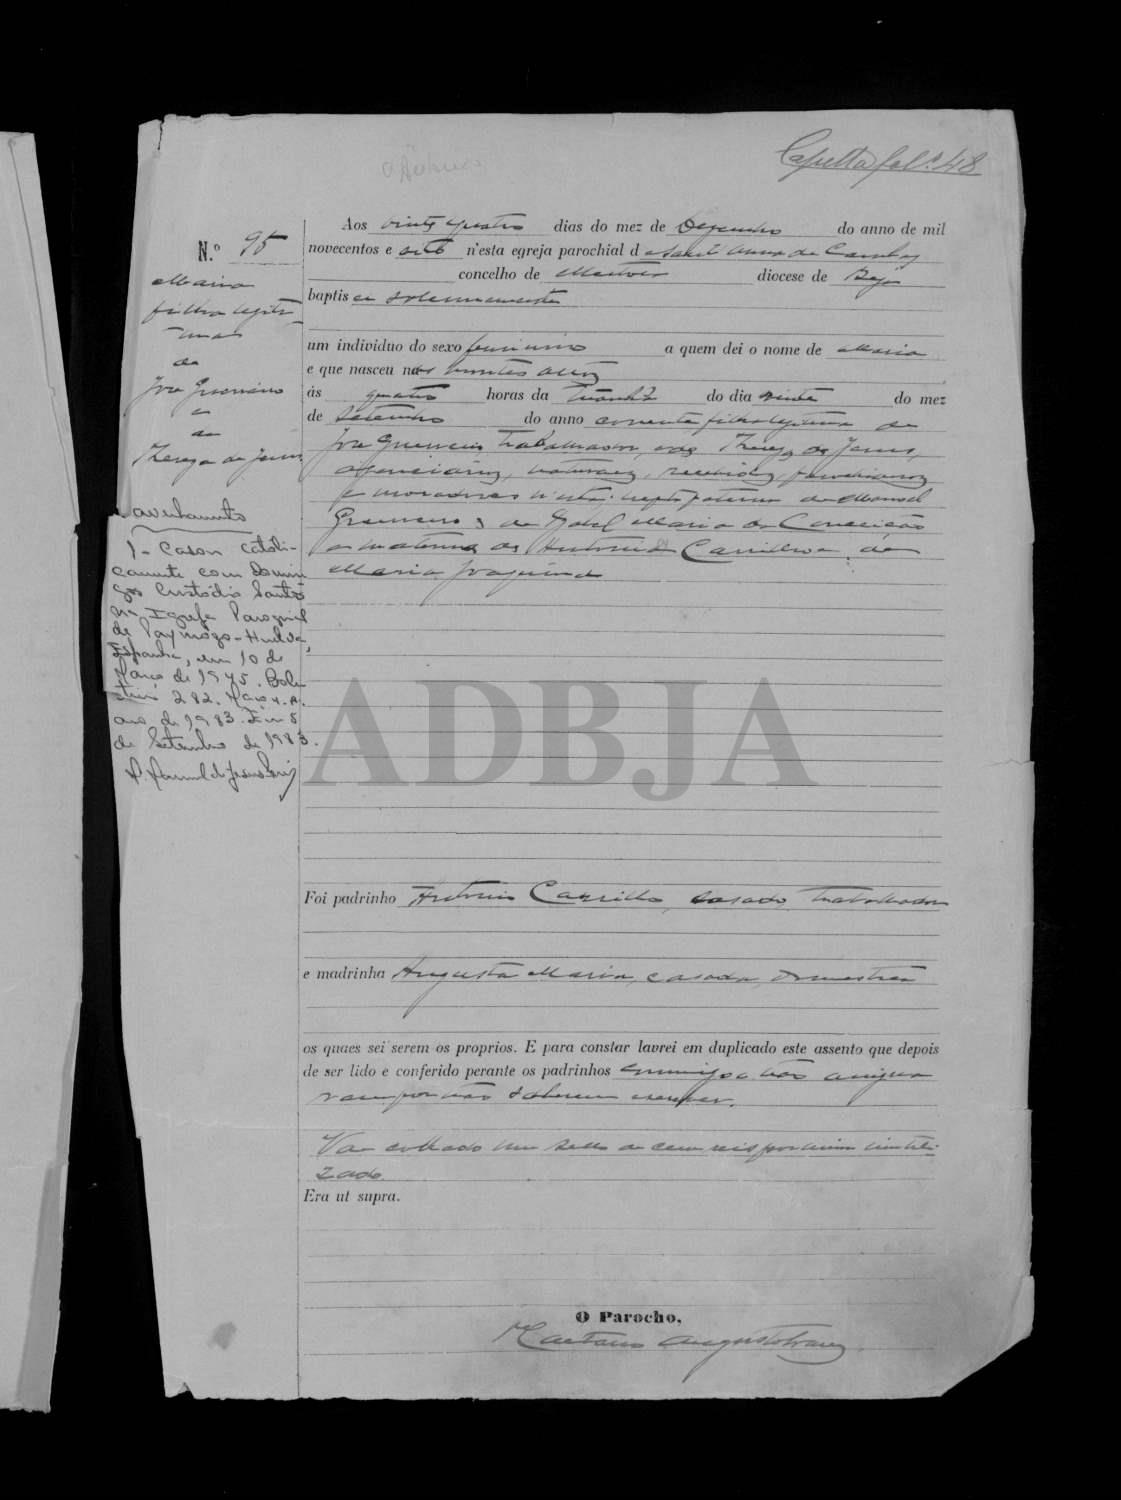 Capella fol. 48
N.º 95
Maria
filha legiti-
ma
de
José Guerreiro
e
de
Thereza de Jesus
Averbamento
1- Casou catoli-
camente com Domin
gos Custódio Santos
na Igreja Paroquial
de Paymogo-Huelva,
Espanha, em 10 de
Março de 1945. Bole
tim 282. Março 4. A.
ano de 1983. Em 5
de Setembro de 1983.
Aos vinte quatro dias do mez de Dezembro do anno de mil
novecentos e oito n'esta egreja parochial de Sant'Anna de Cambas
concelho de Mertola diocese de Beja
baptisei solemnemente
um individuo do sexo feminino a quem dei o nome de Maria
e que nasceu nos
ás quatro horas da manhã do dia vinte do mez
de Setembro do anno corrente filha legitima de
José Guerreiro, trabalhador, e de Thereza de Jesus,
naturaes, recebidos, parochianos
e moradores n'esta: neta paterna de Manoel
Guerreiro e de Izabel Maria da Conceição
e materna de Antonio Carrilho e de
Maria Joaquina
ADBJA
Foi padrinho Antonio Carrilho, casado, trabalhador
e madrinha Augusta Maria, casada, domestica
os quaes sei serem os proprios. E para constar lavrei em duplicado este assento que depois
de ser lido e conferido perante os padrinhos commigo não assigna
ram por não saberem escrever.
Vae collado um sello de cem reis por mim inutili-
zado.
Era ut supra.
O Parocho,
Caetano Augusto